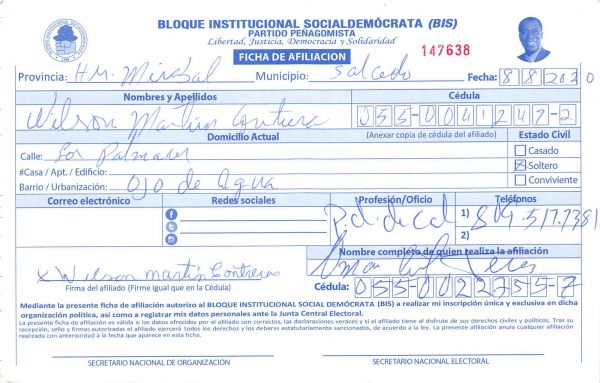 BLOQUE INSTITUCIONAL SOCIALDEMÓCRATA (BIS)
PARTIDO PEÑAGOMISTA
Libertad, Justicia, Democracia y Solidaridad
FICHA DE AFILIACION
147638
Provincia: H.M. Mirabal Municipio: Salcedo Fecha: 8 8 20 0
Nombres y Apellidos Cédula
Wilson Martin 055-0041247-2
Domicilio Actual (Anexar copia de cédula del afiliado) Estado Civil
Calle: Los Palmares
Casado
#Casa / Apt. / Edificio: Soltero
Barrio / Urbanización: Ojo de Agua Conviviente
Correo electrónico Redes sociales Profesión/Oficio Teléfonos
1) 809.517.7381
2)
Nombre completo de quien realiza la afiliación
Omar Perez
x Wilson Martin Contreras
Firma del afiliado (Firme igual que en la Cédula) Cédula: 055-0022755-7
Mediante la presente ficha de afiliación autorizo al BLOQUE INSTITUCIONAL SOCIAL DEMÓCRATA (BIS) a realizar mi inscripción única y exclusiva en dicha
organización política, así como a registrar mis datos personales ante la Junta Central Electoral.
La presente ficha de afiliación es válida si los datos ofrecidos por el afiliado son correctos, las declaraciones veraces y si el afiliado tiene el disfrute de sus derechos civiles y políticos. Tras su
recepción, sello y firmas autorizadas el afiliado ejercerá todos los derechos y los deberes estatutariamente sancionados, de acuerdo a la ley. La presente afiliación anula cualquier afiliación
realizada con anterioridad a la fecha que aparece en esta ficha.
SECRETARIO NACIONAL DE ORGANIZACIÓN SECRETARIO NACIONAL ELECTORAL